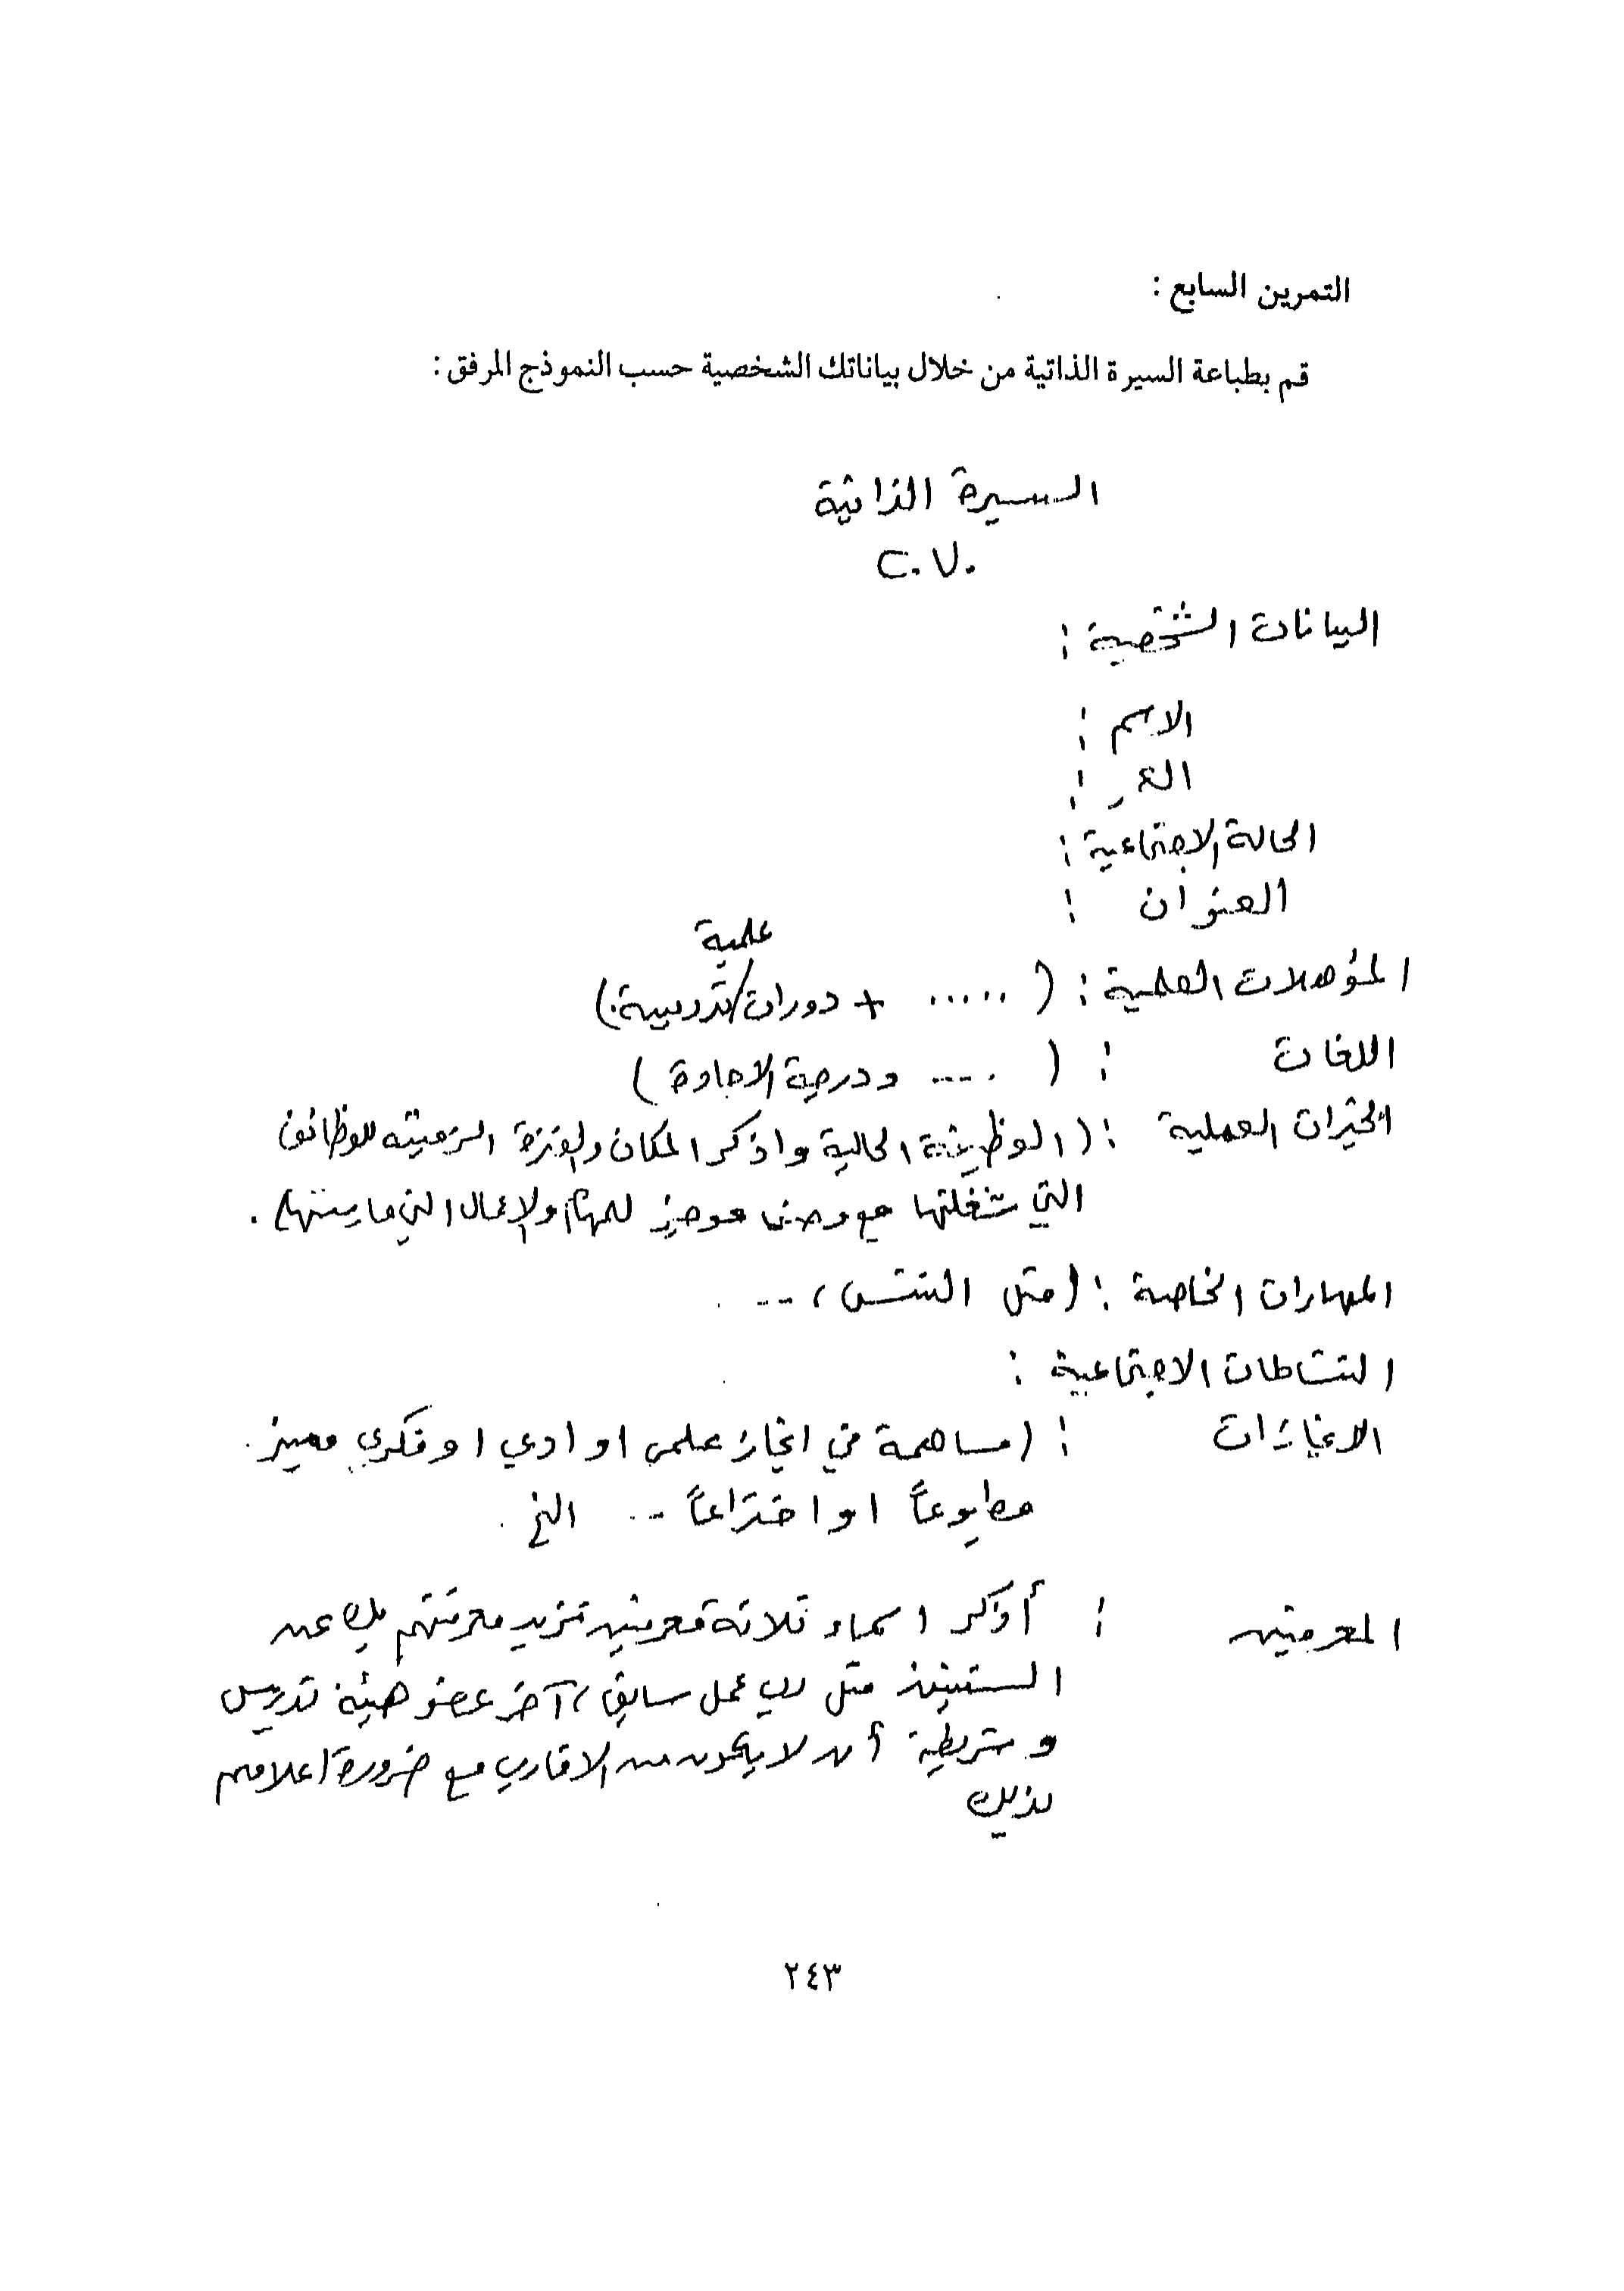 التمرين السابع :
قم بطباعة السيرة الذاتية من خلال بياناتك الشخصية حسب النموذج المرفق :
السيرة الذاتية
C.V.
البيانات الشخصية :
الاسم :
العمر :
الحالة الاجتماعية :
العنوان :
علمية
المؤهلات العلمية : ( ..... + دورات / تدريبية . )
اللغات : ( .... ودرجة الاجادة )
الخبرات العملية : ( الوظيفة الحالية واذكر المكان والفترة الزمنية للوظائف
التي شغلتها مع وصف موجز للمهام والاعمال التي مارستها .
المهارات الخاصة : ( مثل التنس ، ...
النشاطات الاجتماعية :
الانجازات : ( مساهمة في انجاز علمي او ادبي او فكري مميز .
مطبوعاً او اختراعاً ... الخ .
المعرفين : أذكر اسماء ثلاثة معرفين تزيد معرفتهم بك عن
السنتين مثل رب عمل سابق ، آخر عضو هيئة تدريس
وشريطة أن لا يكون من الاقارب مع ضرورة اعلامهم
بذلك
٢٤٣